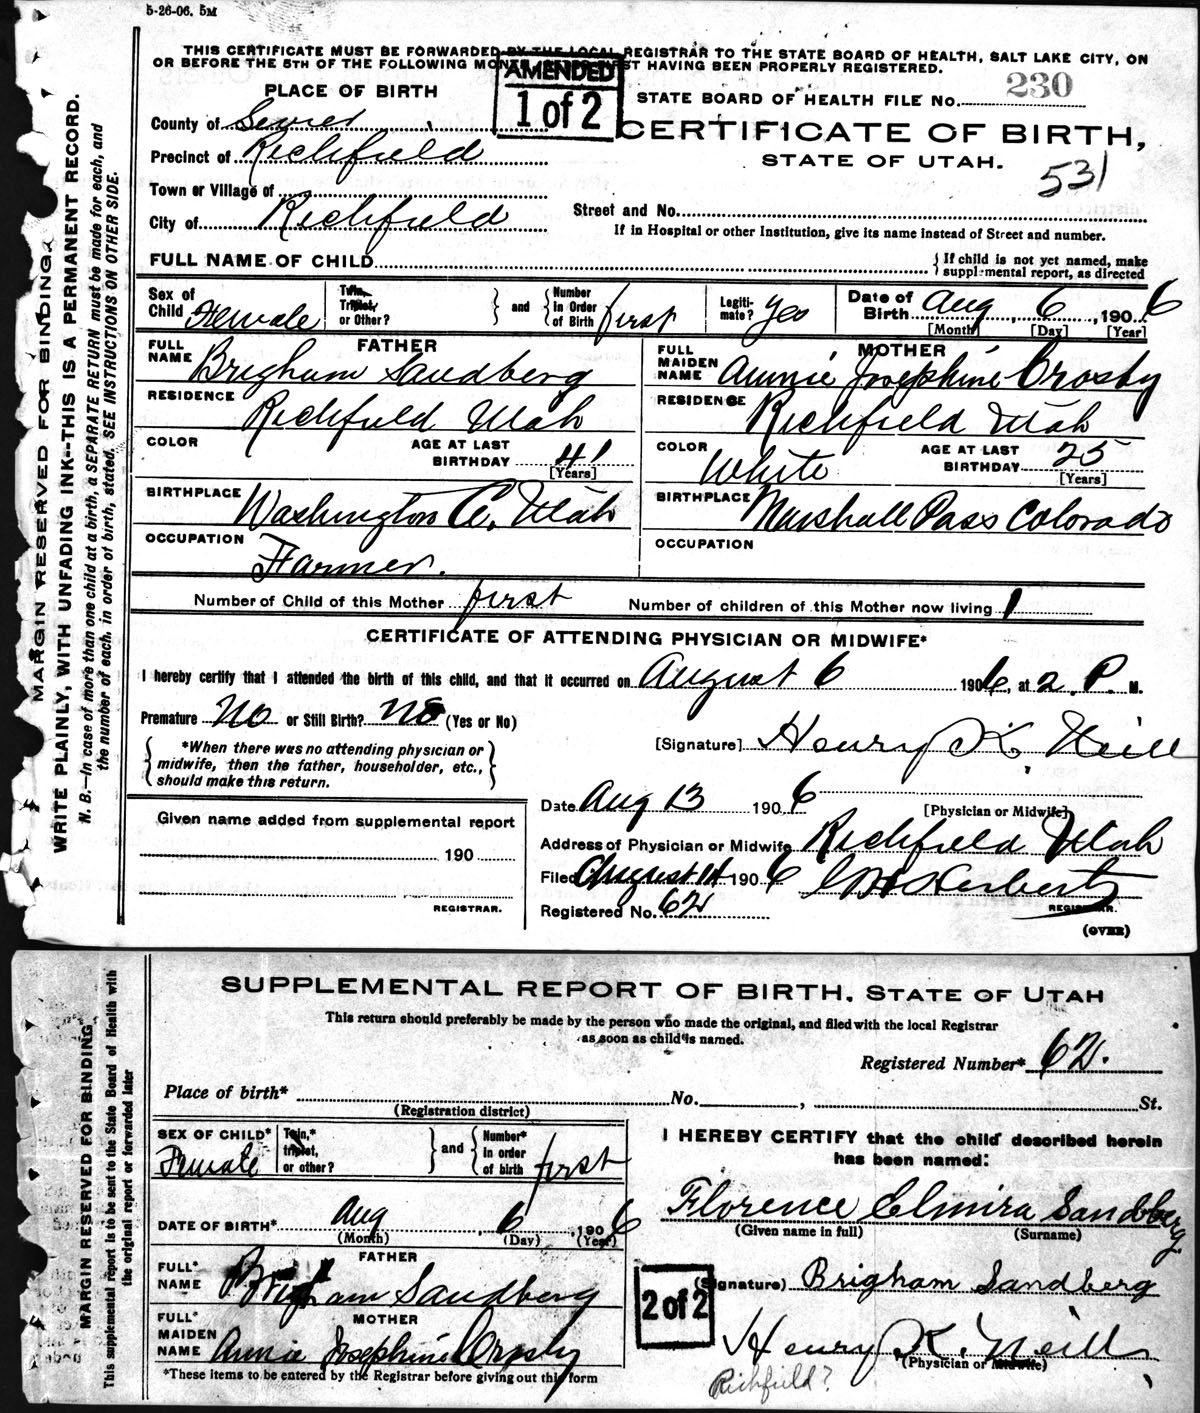 5-26-06. 5M
THIS CERTIFICATE MUST BE FORWARDED BY THE LOCAL REGISTRAR TO THE STATE BOARD OF HEALTH, SALT LAKE CITY, ON
OR BEFORE THE 5TH OF THE FOLLOWING MONTH, FIRST HAVING BEEN PROPERLY REGISTERED.
AMENDED
1 of 2
PLACE OF BIRTH
STATE BOARD OF HEALTH FILE NO. 230
County of Sevier
CERTIFICATE OF BIRTH,
Precinct of Richfield
STATE OF UTAH.
531
Town or Village of
Street and No.
City of Richfield
If in Hospital or other Institution, give its name instead of Street and number.
FULL NAME OF CHILD
{ If child is not yet named, make supplemental report, as directed
Sex of Child Female
Twin, Triplet, or Other? } and { Number in Order of Birth first
Legitimate? Yes
Date of Birth Aug, 6, 1906
[Month] [Day] [Year]
FATHER
FULL NAME Brigham Sandberg
RESIDENCE Richfield Utah
COLOR
AGE AT LAST BIRTHDAY 41 [Years]
BIRTHPLACE Washington Co. Utah
OCCUPATION Farmer.
MOTHER
FULL MAIDEN NAME Annie Josephine Crosby
RESIDENCE Richfield Utah
COLOR White
AGE AT LAST BIRTHDAY 25 [Years]
BIRTHPLACE Marshall Pass Colorado
OCCUPATION
Number of Child of this Mother first Number of children of this Mother now living 1
CERTIFICATE OF ATTENDING PHYSICIAN OR MIDWIFE*
I hereby certify that I attended the birth of this child, and that it occurred on August 6 1906, at 2 P. M.
Premature No or Still Birth? No (Yes or No)
{ *When there was no attending physician or midwife, then the father, householder, etc., should make this return. }
[Signature] Henry K. Neill
[Physician or Midwife]
Date Aug 13 1906
Given name added from supplemental report
190
REGISTRAR.
Address of Physician or Midwife Richfield Utah
Filed August 14 1906 Herbert
REGISTRAR.
Registered No. 62
(OVER)
MARGIN RESERVED FOR BINDING.
WRITE PLAINLY, WITH UNFADING INK--THIS IS A PERMANENT RECORD.
N. B.—In case of more than one child at a birth, a SEPARATE RETURN must be made for each, and
the number of each, in order of birth, stated. SEE INSTRUCTIONS ON OTHER SIDE.
SUPPLEMENTAL REPORT OF BIRTH, STATE OF UTAH
This return should preferably be made by the person who made the original, and filed with the local Registrar
as soon as child is named.
Registered Number* 62.
Place of birth* No. , St.
(Registration district)
SEX OF CHILD* Female
Twin,* triplet, or other? } and { Number* in order of birth first
DATE OF BIRTH* Aug, 6, 1906
(Month) (Day) (Year)
FATHER
FULL* NAME Brigham Sandberg
MOTHER
FULL* MAIDEN NAME Annie Josephine Crosby
*These items to be entered by the Registrar before giving out this form
I HEREBY CERTIFY that the child described herein
has been named:
Florence Elmira Sandberg
(Given name in full) (Surname)
2 of 2
(Signature) Brigham Sandberg
Henry K. Neill
(Physician or Midwife)
Richfield?
MARGIN RESERVED FOR BINDING
This supplemental report is to be sent to the State Board of Health with
the original report or forwarded later